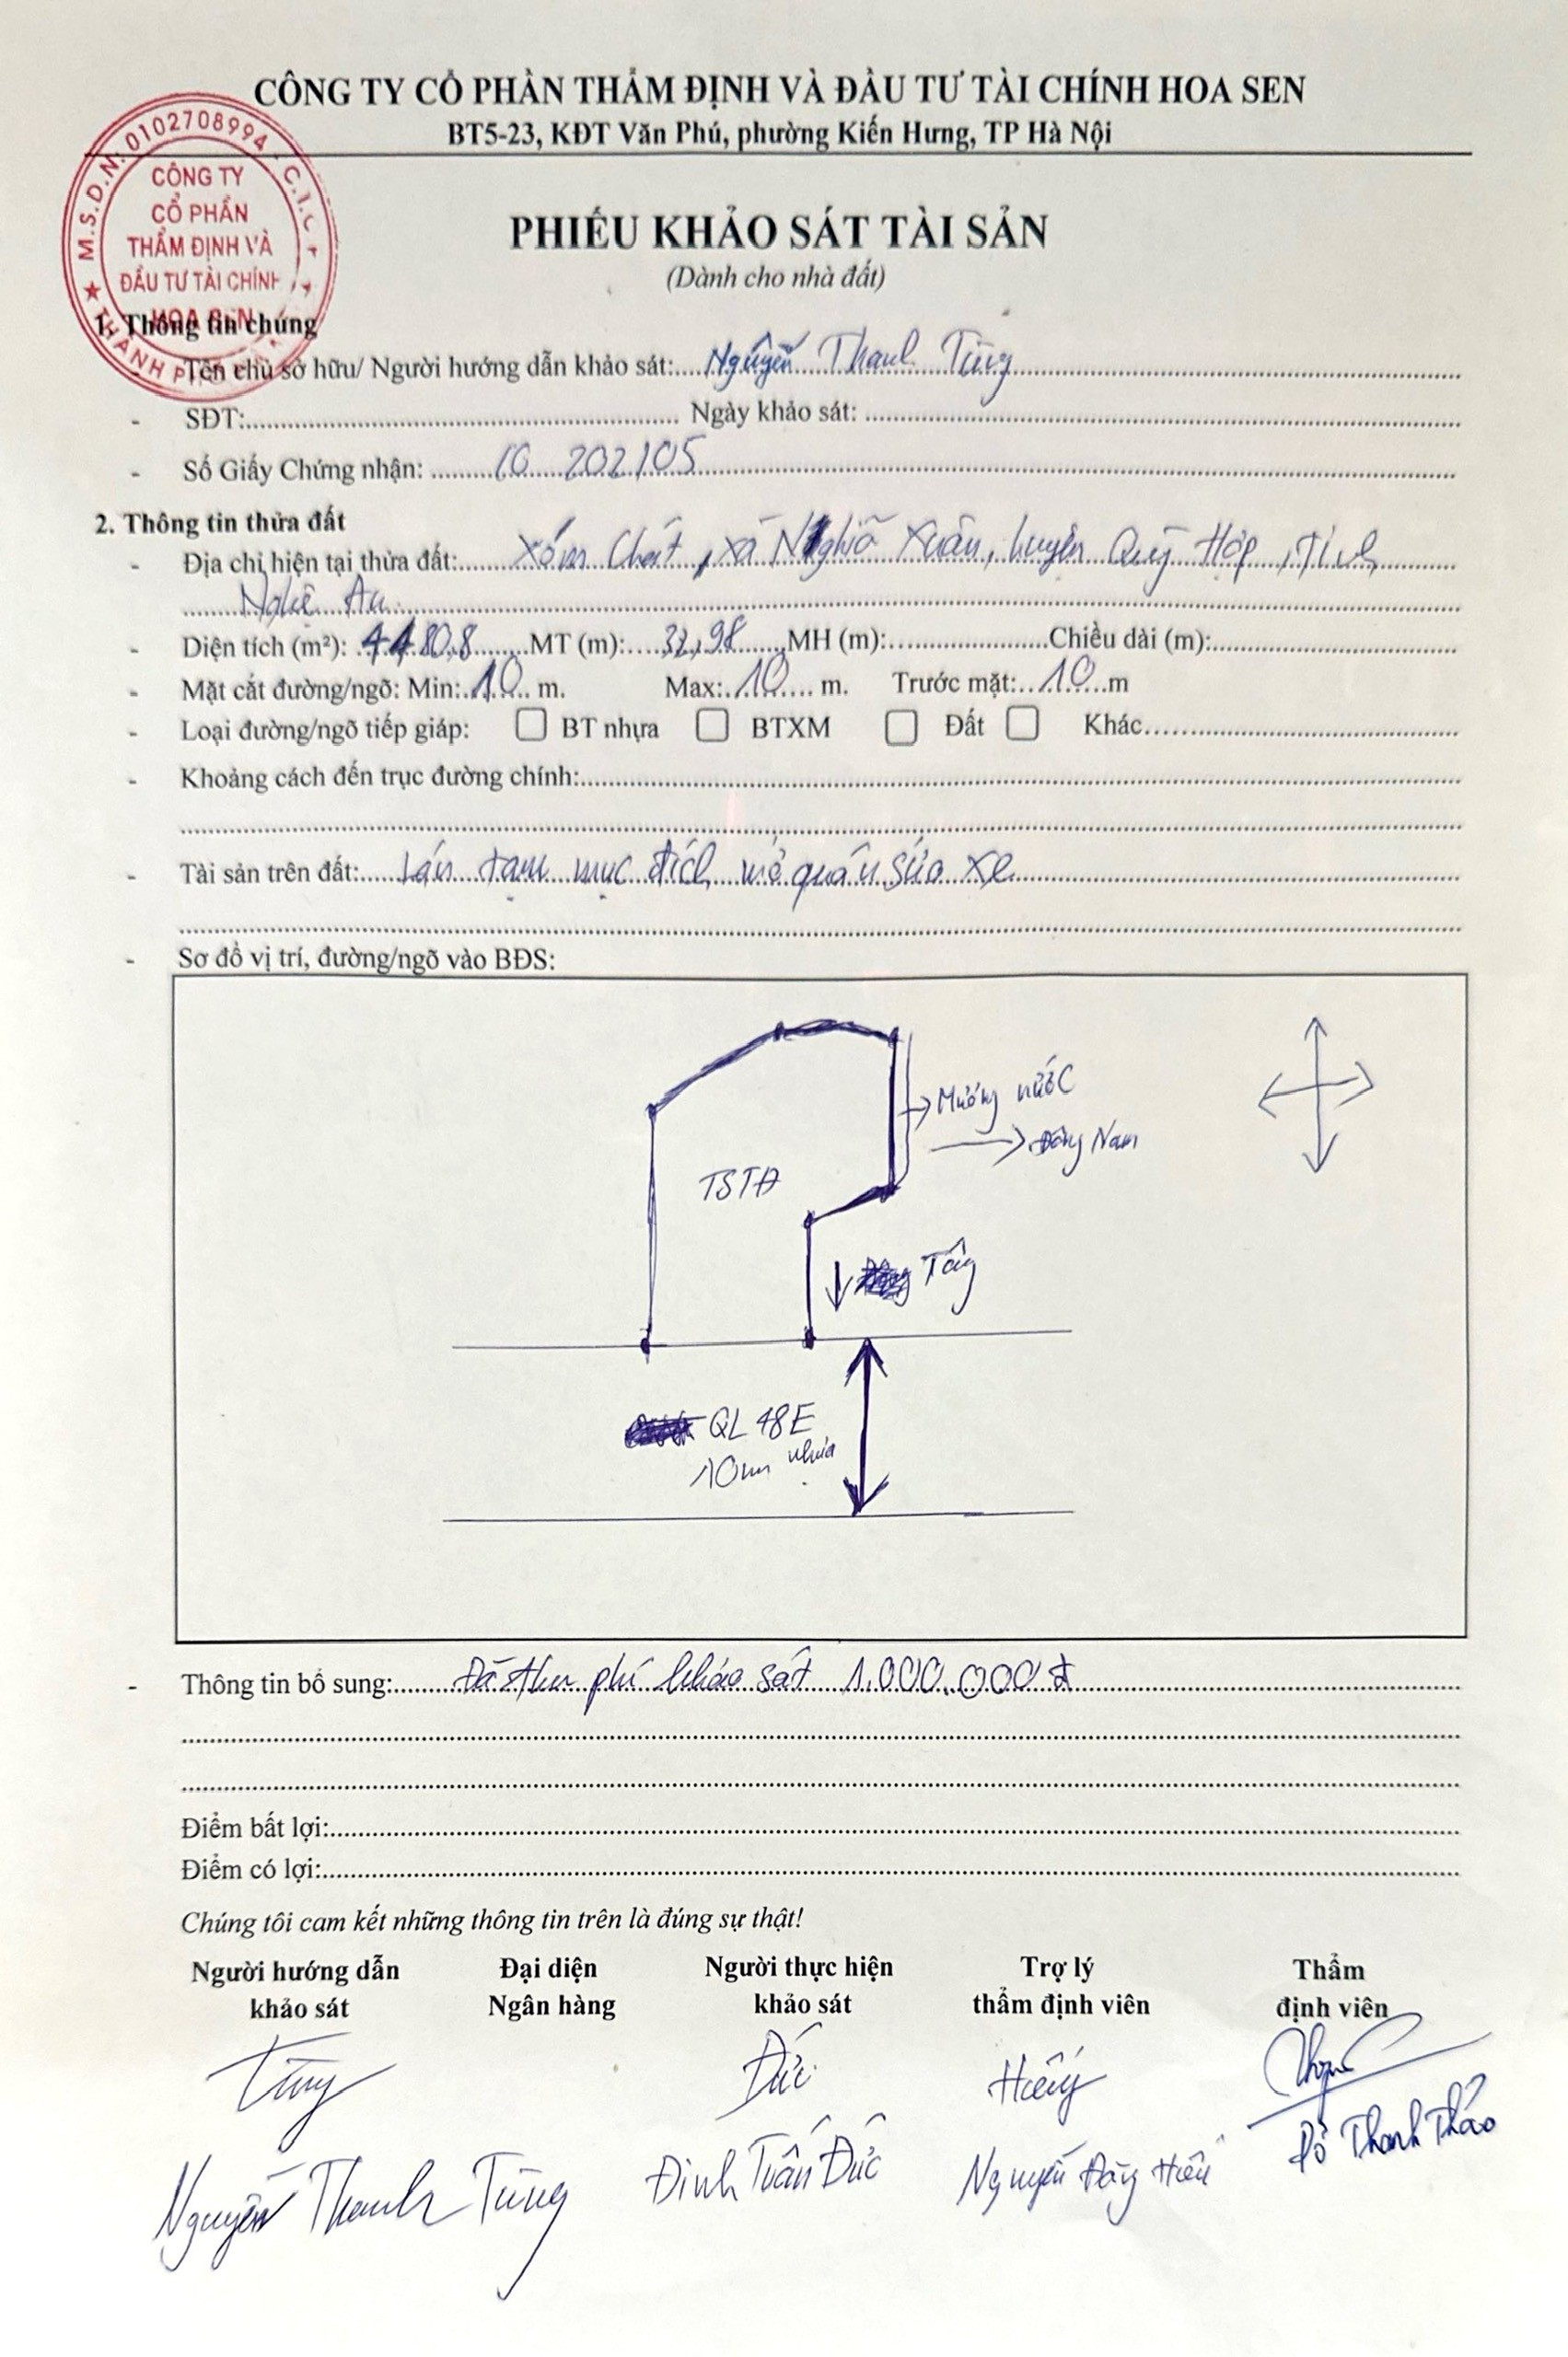 CÔNG TY CỔ PHẦN THẨM ĐỊNH VÀ ĐẦU TƯ TÀI CHÍNH HOA SEN
BT5-23, KĐT Văn Phú, phường Kiến Hưng, TP Hà Nội
M.S.D.N: 0102708994 - C.T.C
CÔNG TY
CỔ PHẦN
THẨM ĐỊNH VÀ
ĐẦU TƯ TÀI CHÍNH
HOA SEN
PHIẾU KHẢO SÁT TÀI SẢN
(Dành cho nhà đất)
1. Thông tin chung
Tên chủ sở hữu/ Người hướng dẫn khảo sát: Nguyễn Thanh Tùng
- SĐT: Ngày khảo sát:
- Số Giấy Chứng nhận: 202105
2. Thông tin thửa đất
- Địa chỉ hiện tại thửa đất: Xóm Chát, xã Nghĩa Xuân, huyện Quỳ Hợp, Tỉnh
Nghệ An
- Diện tích (m²): MT (m): 32,98 MH (m): Chiều dài (m):
- Mặt cắt đường/ngõ: Min: 10 m. Max: 10 m. Trước mặt: 10 m
- Loại đường/ngõ tiếp giáp: BT nhựa BTXM Đất Khác
- Khoảng cách đến trục đường chính:
- Tài sản trên đất: Lán tạm mục đích mở quán sửa xe
- Sơ đồ vị trí, đường/ngõ vào BĐS:
Mương nước
Đông Nam
TSTĐ
Tây
QL 48E
10m nhựa
- Thông tin bổ sung: Đã thu phí khảo sát 1.000.000đ
Điểm bất lợi:
Điểm có lợi:
Chúng tôi cam kết những thông tin trên là đúng sự thật!
Người hướng dẫn khảo sát Đại diện Ngân hàng Người thực hiện khảo sát Trợ lý thẩm định viên Thẩm định viên
Tùng Đức Hiếu
Nguyễn Thanh Tùng Đinh Tuấn Đức Nguyễn Đăng Hiếu Đỗ Thanh Thảo